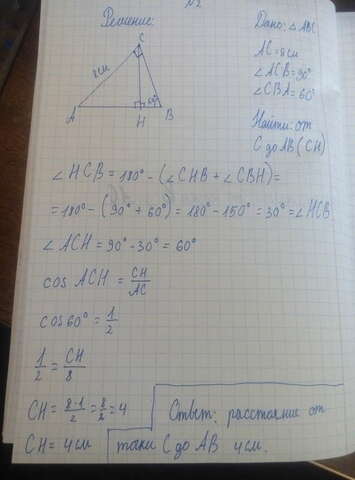 №2
Решение:
Дано: △ABC
AC=8см
∠ACB=90°
∠CBA=60°
Найти: от
C до AB (CH)
C
8см
60°
A
H
B
∠HCB=180°-(∠CHB+∠CBH)=
=180°-(90°+60°)=180°-150°=30°=∠HCB
∠ACH=90°-30°=60°
cos ACH = CH/AC
cos60°=1/2
1/2=CH/8
CH=8·1/2=8/2=4
CH=4см
Ответ: расстояние от
точки C до AB 4см.